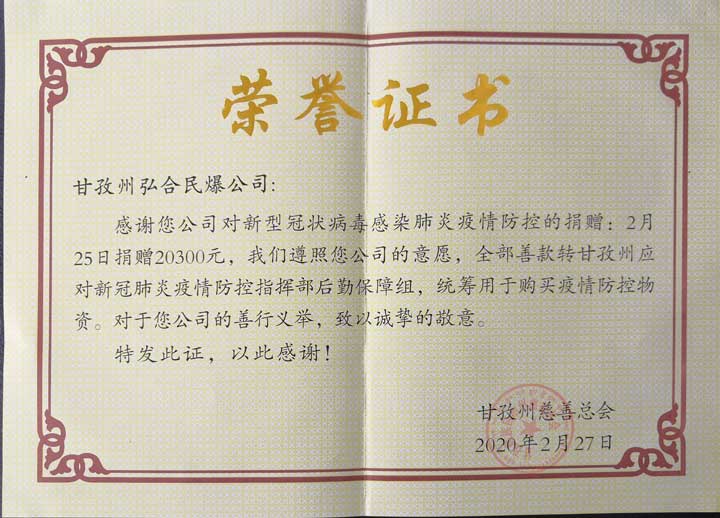 荣誉证书
甘孜州弘合民爆公司：
感谢您公司对新型冠状病毒感染肺炎疫情防控的捐赠：2月
25日捐赠20300元，我们遵照您公司的意愿，全部善款转甘孜州应
对新冠肺炎疫情防控指挥部后勤保障组，统筹用于购买疫情防控物
资。对于您公司的善行义举，致以诚挚的敬意。
特发此证，以此感谢！
甘孜州慈善总会
2020年2月27日